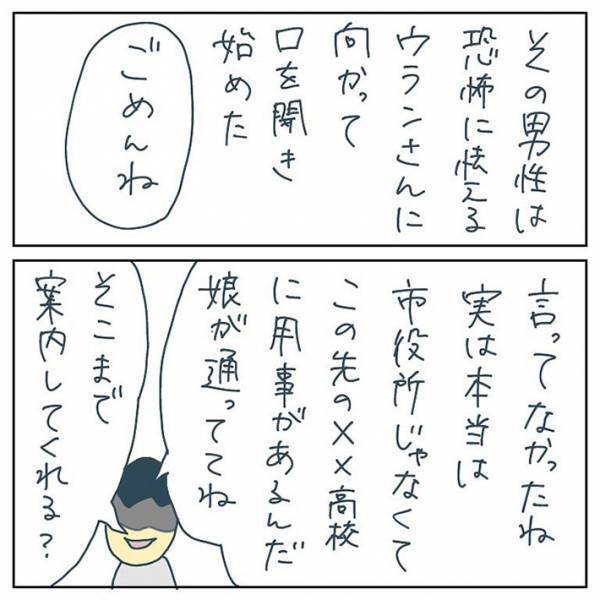 その男性は
恐怖に怯える
ウランさんに
向かって
口を開き
始めた
ごめんね
言ってなかったね
実は本当は
市役所じゃなくて
この先の××高校
に用事があるんだ
娘が通っててね
そこまで
案内してくれる?